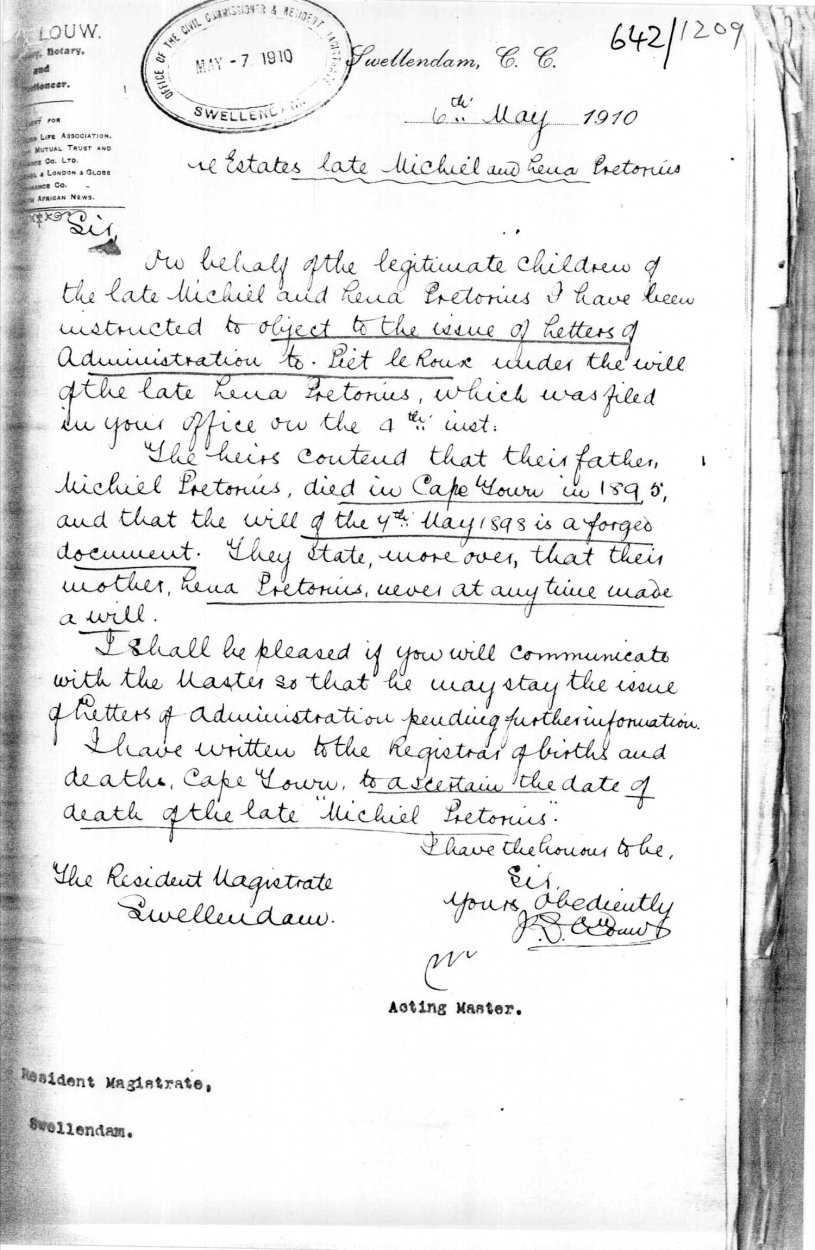 LOUW.
Notary,
and
FOR
LIFE ASSOCIATION.
MUTUAL TRUST AND
CO. LTD.
& LONDON & GLOBE
CO.
AFRICAN NEWS.
OFFICE OF THE CIVIL COMMISSIONER & RESIDENT MAGISTRATE
MAY - 7 1910
SWELLENDAM
642/1209
Swellendam, C. C.
6th May 1910
re Estates late Michiel and Lena Pretorius
Sir,
On behalf of the legitimate children of
the late Michiel and Lena Pretorius I have been
instructed to object to the issue of Letters of
Administration to Piet le Roux under the will
of the late Lena Pretorius, which was filed
in your office on the 4th inst:
The heirs contend that their father,
Michiel Pretorius, died in Cape Town in 1895,
and that the will of the 7th May 1898 is a forged
document. They state, more over, that their
mother, Lena Pretorius, never at any time made
a will.
I shall be pleased if you will communicate
with the Master so that he may stay the issue
of Letters of Administration pending further information.
I have written to the Registrar of births and
deaths, Cape Town, to ascertain the date of
death of the late "Michiel Pretorius".
I have the honour to be,
Sir,
Yours Obediently
The Resident Magistrate
Swellendam.
Acting Master.
Resident Magistrate,
Swellendam.